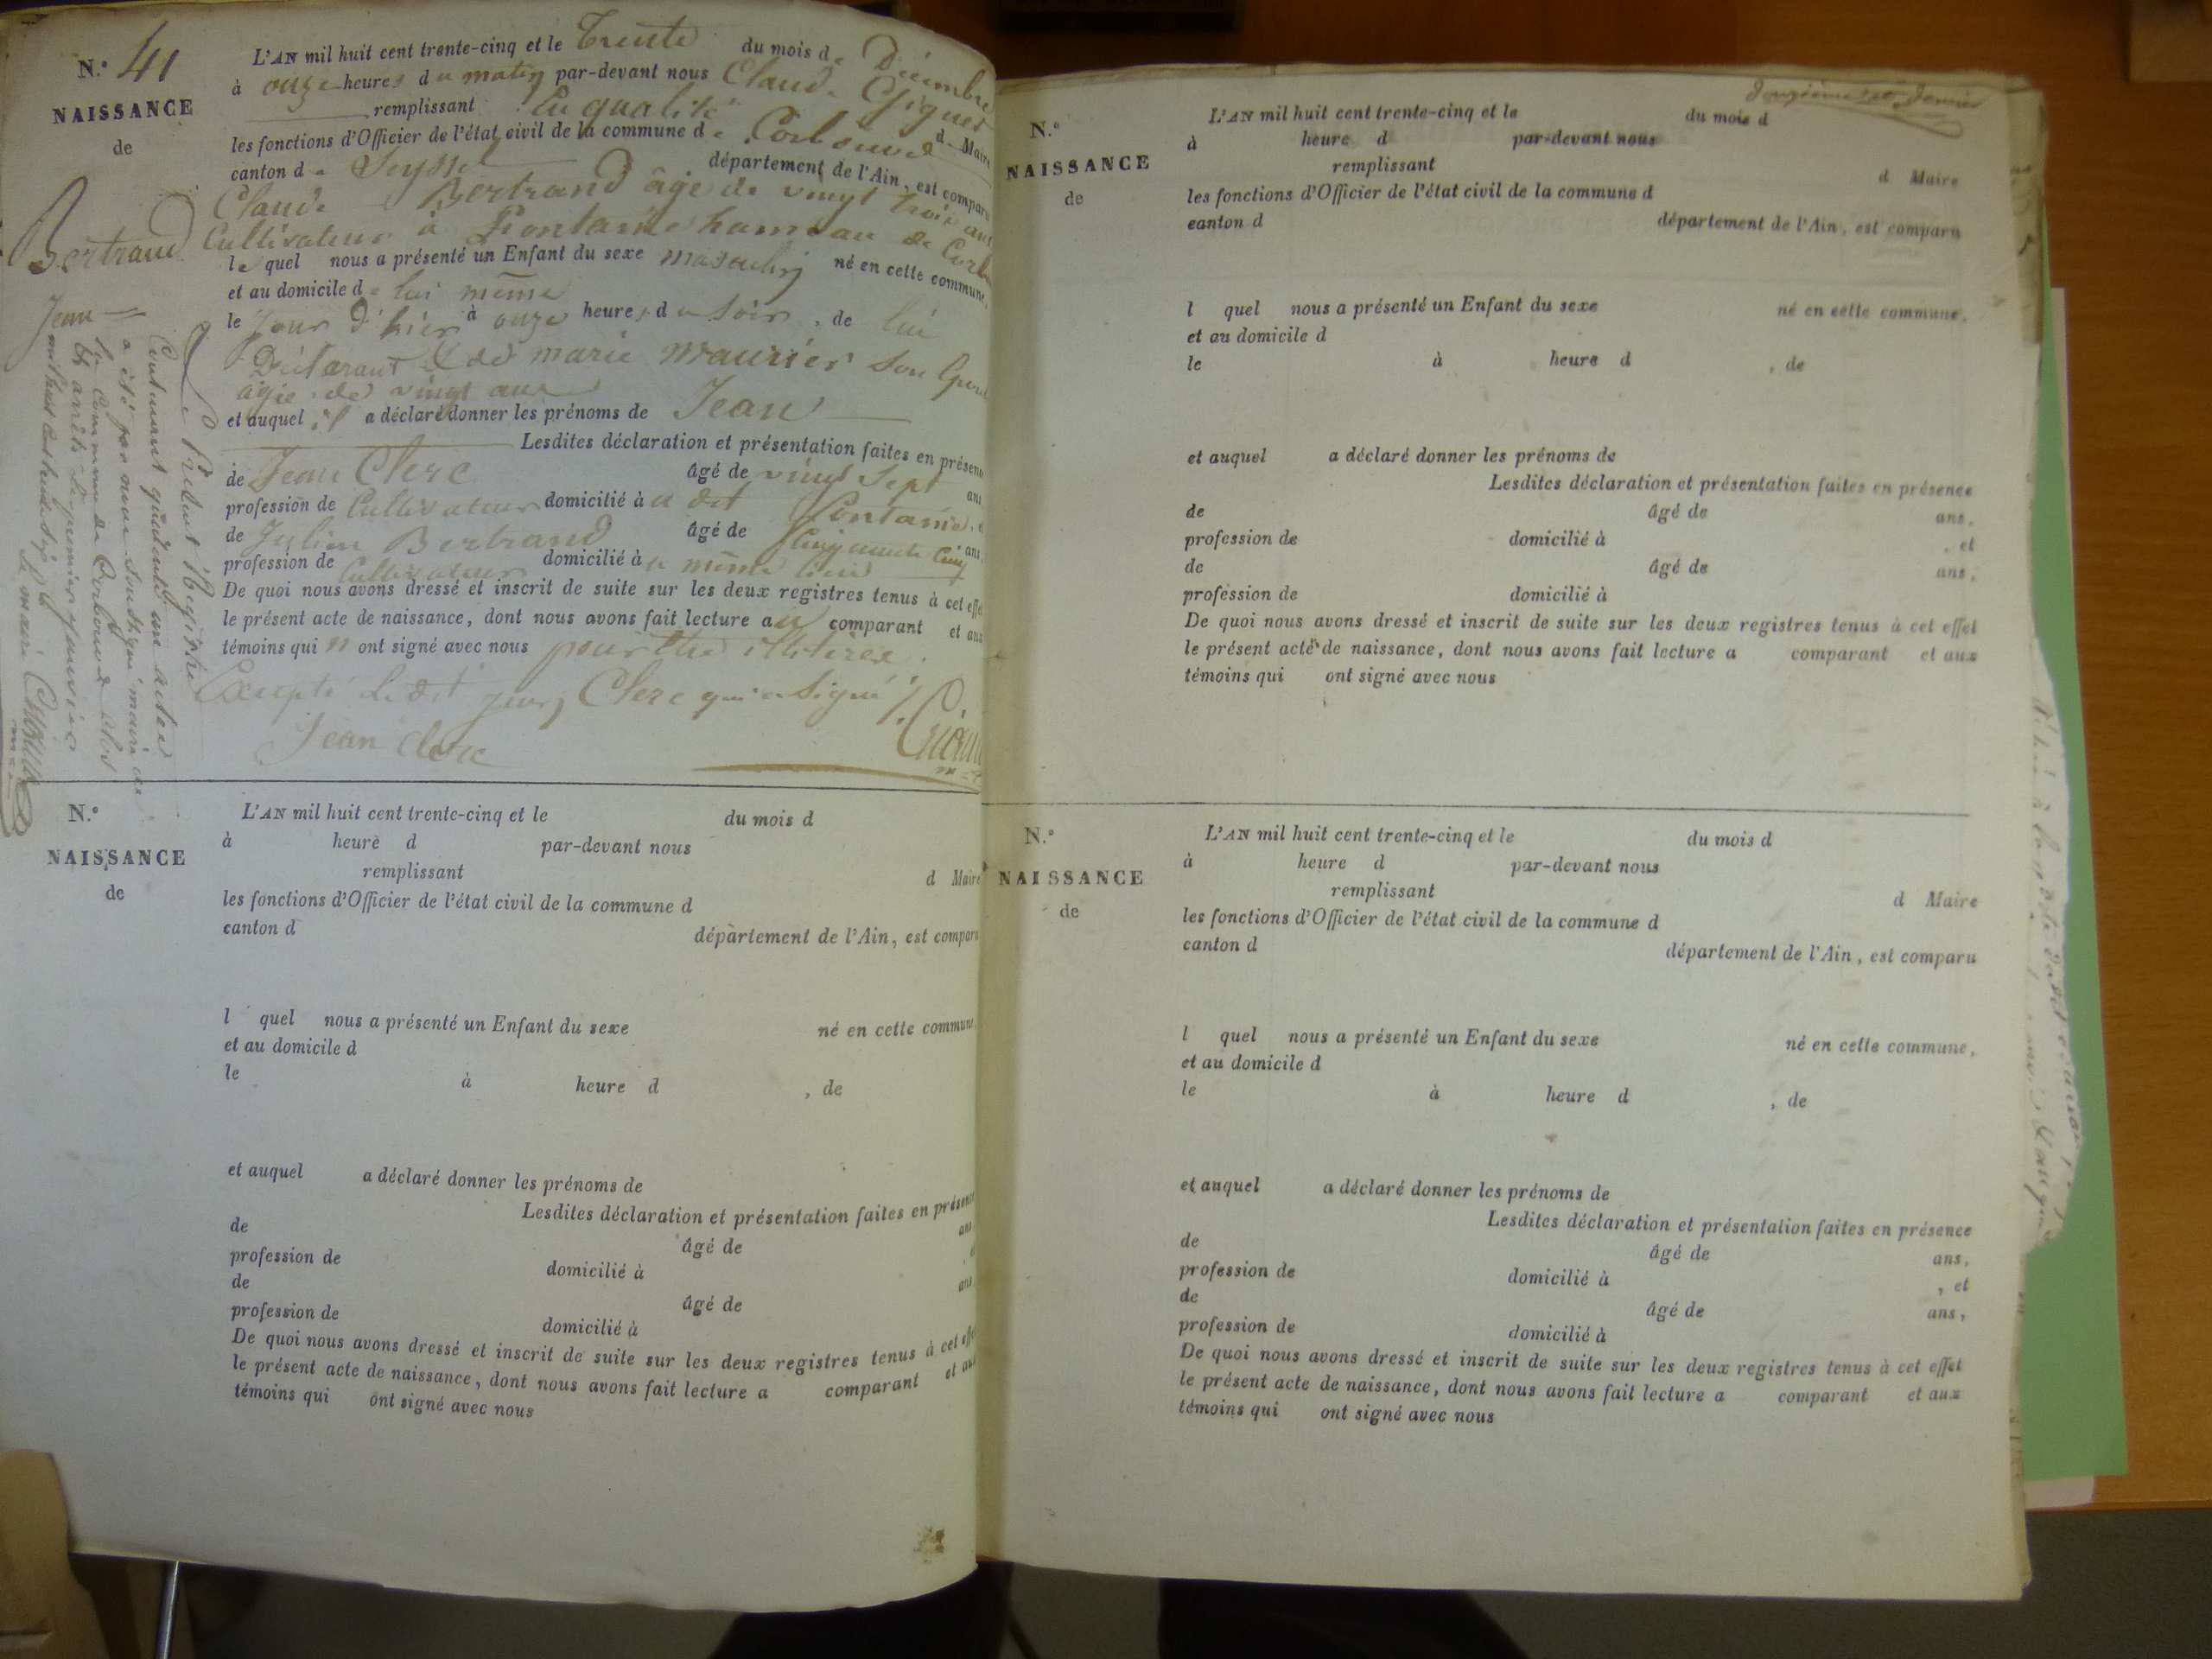 N.° 41
NAISSANCE
de
Bertrand
Jean
L'AN mil huit cent trente-cinq et le Trente du mois de Décembre
à onze heures du matin par-devant nous Claude
remplissant En qualité de Maire
les fonctions d'Officier de l'état civil de la commune de Corbonod
canton de Seyssel département de l'Ain, est comparu
Claude Bertrand âgé de vingt trois ans
Cultivateur à hameau de
lequel nous a présenté un Enfant du sexe masculin né en cette commune,
et au domicile de lui même
le jour d'hier à onze heures du soir, de lui
Déclarant & de marie son
agée de vingt ans
et auquel il a déclaré donner les prénoms de Jean
Lesdites déclaration et présentation faites en présence
de Jean Clerc âgé de vingt Sept ans
profession de Cultivateur domicilié à
de Julien Bertrand âgé de Cinquante Cinq ans
profession de Cultivateur domicilié au même lieu
De quoi nous avons dressé et inscrit de suite sur les deux registres tenus à cet effet
le présent acte de naissance, dont nous avons fait lecture au comparant et aux
témoins qui n ont signé avec nous pour être illitérés.
Excepté ledit jean Clerc qui a signé
Jean clerc
Le Présent Registre
Contenant quarante un actes
a été par nous Soussigné maire de
la Commune de Corbonod Clos
et arrêté Le premier janvier
mil huit Cent trente Six
Le maire
N.°
NAISSANCE
de
L'AN mil huit cent trente-cinq et le du mois d
à heure d par-devant nous
remplissant d Maire
les fonctions d'Officier de l'état civil de la commune d
canton d département de l'Ain, est comparu
l quel nous a présenté un Enfant du sexe né en cette commune,
et au domicile d
le à heure d , de
et auquel a déclaré donner les prénoms de
Lesdites déclaration et présentation faites en présence
de âgé de ans
profession de domicilié à
de âgé de ans
profession de domicilié à
De quoi nous avons dressé et inscrit de suite sur les deux registres tenus à cet effet
le présent acte de naissance, dont nous avons fait lecture a comparant et aux
témoins qui ont signé avec nous
douzième et dernier
N.°
NAISSANCE
de
L'AN mil huit cent trente-cinq et le du mois d
à heure d par-devant nous
remplissant d Maire
les fonctions d'Officier de l'état civil de la commune d
canton d département de l'Ain, est comparu
l quel nous a présenté un Enfant du sexe né en cette commune,
et au domicile d
le à heure d , de
et auquel a déclaré donner les prénoms de
Lesdites déclaration et présentation faites en présence
de âgé de ans,
profession de domicilié à , et
de âgé de ans,
profession de domicilié à
De quoi nous avons dressé et inscrit de suite sur les deux registres tenus à cet effet
le présent acte de naissance, dont nous avons fait lecture a comparant et aux
témoins qui ont signé avec nous
N.°
NAISSANCE
de
L'AN mil huit cent trente-cinq et le du mois d
à heure d par-devant nous
remplissant d Maire
les fonctions d'Officier de l'état civil de la commune d
canton d département de l'Ain, est comparu
l quel nous a présenté un Enfant du sexe né en cette commune,
et au domicile d
le à heure d , de
et auquel a déclaré donner les prénoms de
Lesdites déclaration et présentation faites en présence
de âgé de ans,
profession de domicilié à , et
de âgé de ans,
profession de domicilié à
De quoi nous avons dressé et inscrit de suite sur les deux registres tenus à cet effet
le présent acte de naissance, dont nous avons fait lecture a comparant et aux
témoins qui ont signé avec nous